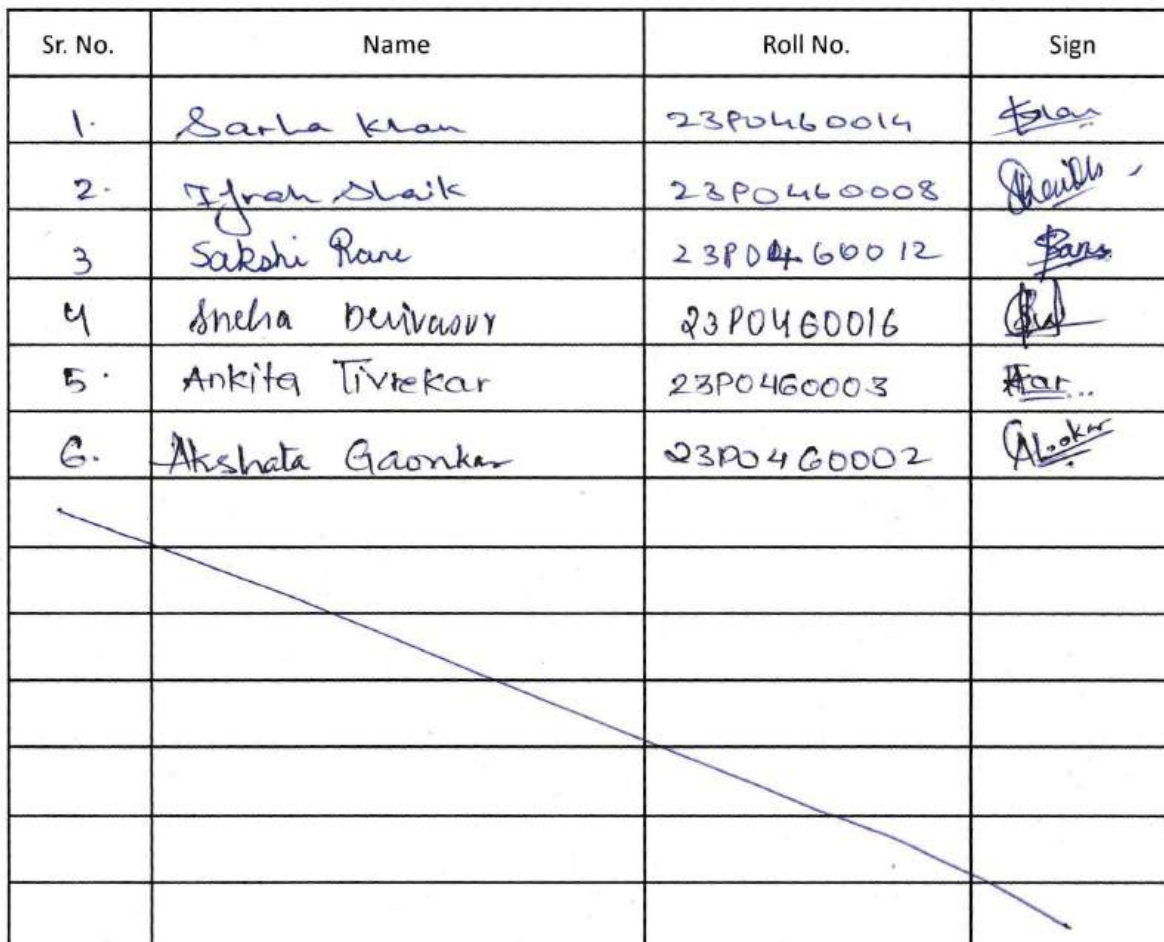 Sr. No. Name Roll No. Sign
1. Sarha Khan 23P0460014 Khan
2. Ifrah Shaik 23P0460008 Shaikh
3 Sakshi Rane 23P0460012
4 Sneha 23P0460016
5. Ankita Tivrekar 23P0460003
6. Akshata Gaonkar 23P0460002